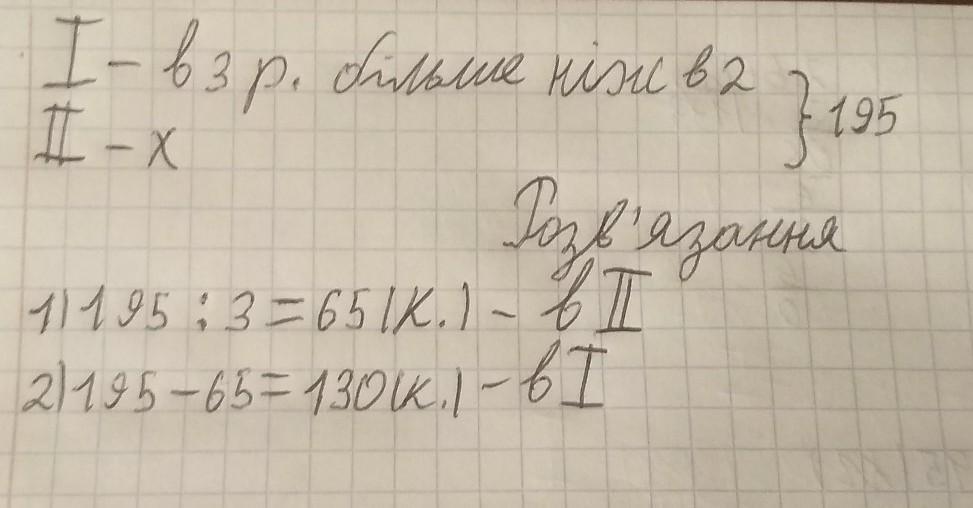 I - в 3 р. більше ніж в 2
II - х } 195
Розв'язання
1) 195 : 3 = 65 (К.) - в II
2) 195 - 65 = 130 (К.) - в I